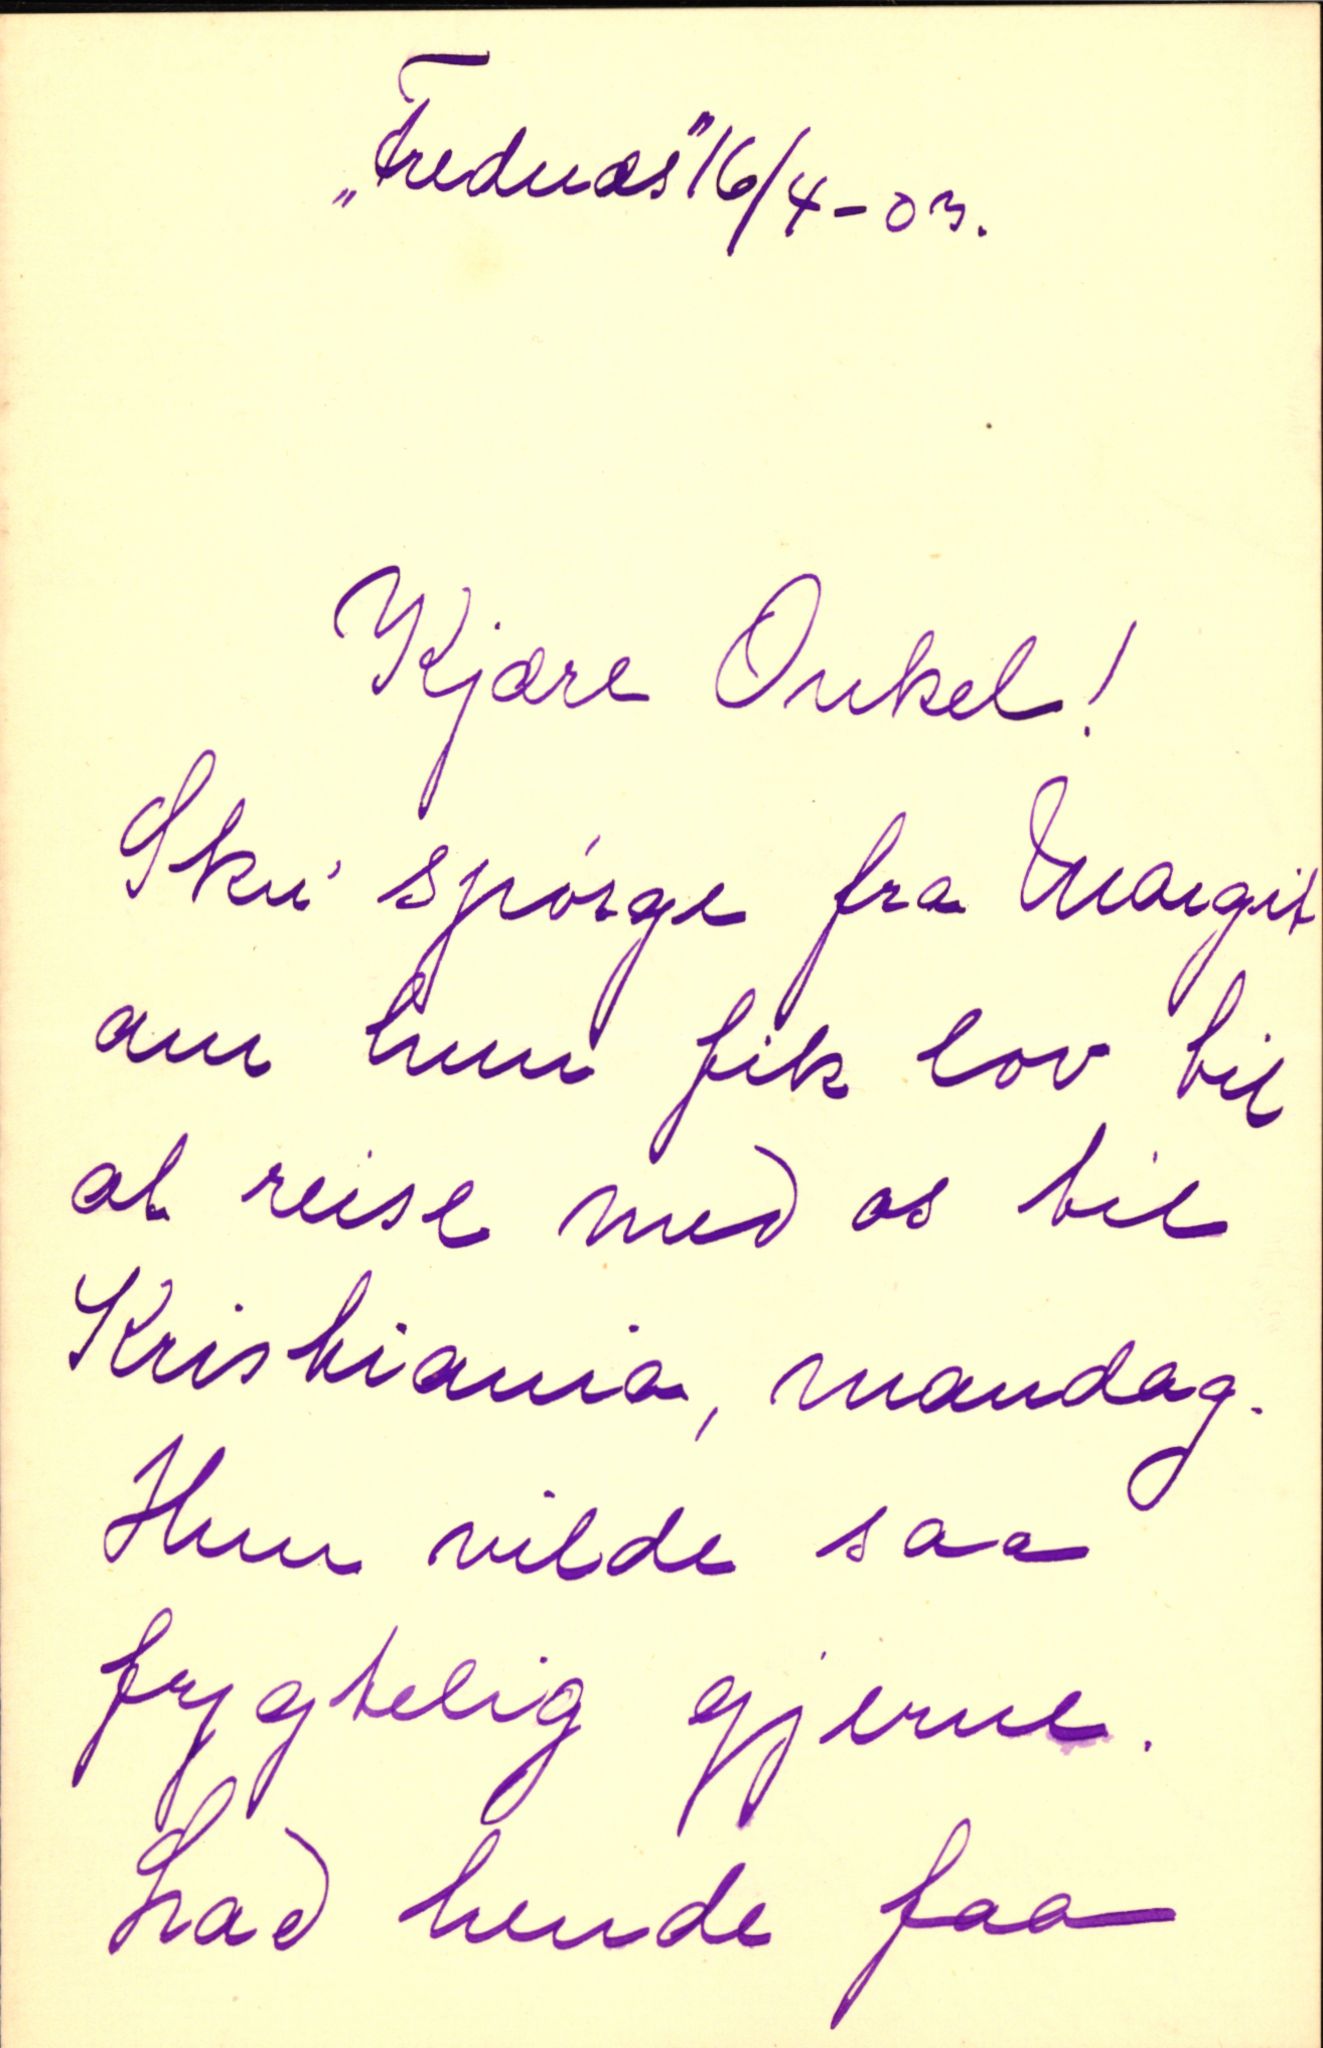 „Frednæs" 16/4-03.
Kjære Onkel!
Sku' spørge fra Margit
om hun fik lov til
at reise med os til
Kristiania, mandag.
Hun vilde saa
frygtelig gjerne.
Lad hende faa